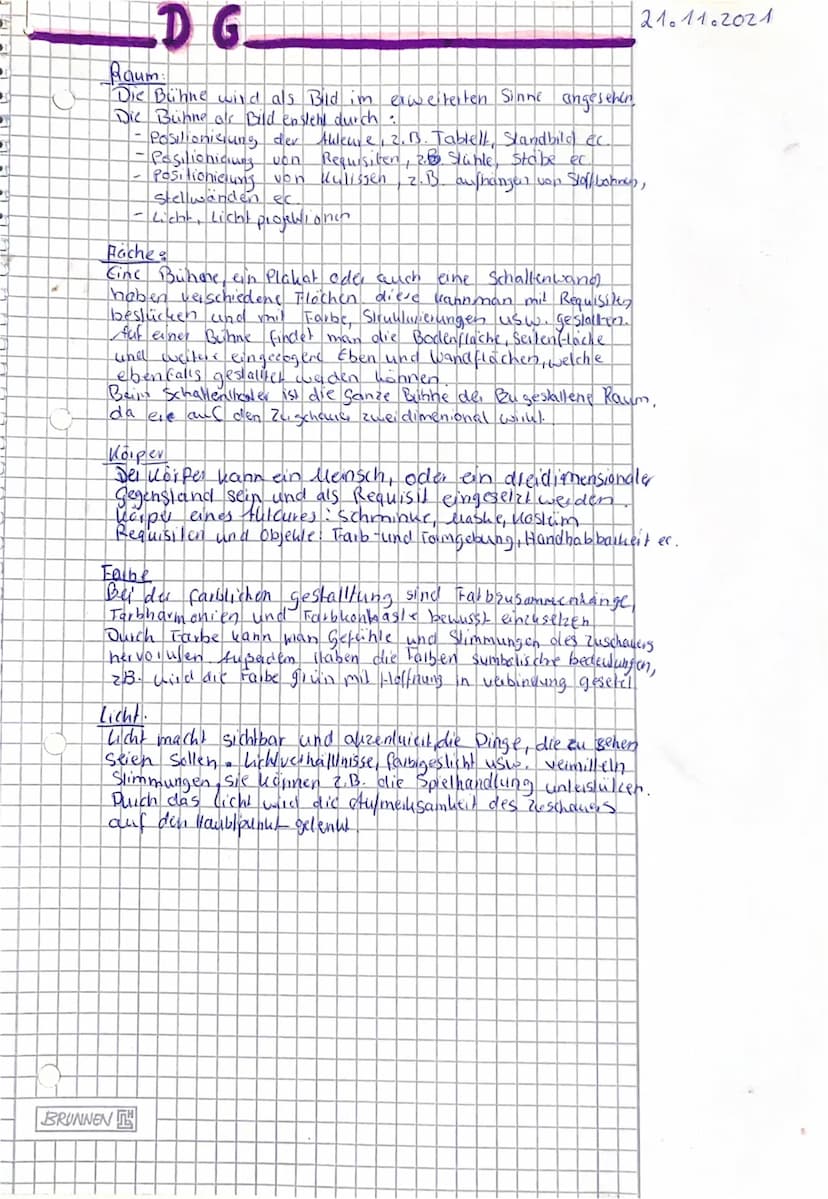 D G
21.11.2021
Raum:
Die Bühne wird als Bild im erweiterten Sinne angesehen.
Die Bühne als Bild ensteht durch:
- Positionierung der Akteure, z.B. Tablett, Standbild ec.
- Positionierung von Requisiten, z.B Stühle, Stäbe ec
- Positionierung von Kulissen, z.B. aufhängen von Stoffbahnen,
stellwänden ec.
- Licht, Licht projektionen
Fläche:
Eine Bühne, ein Plakat oder auch eine Schattenwand
haben verschiedene Flächen diese kann man mit Requisiten
bestücken und mit Farbe, Strukturierungen usw. gestalten.
Auf einer Bühne findet man die Bodenfläche, Seitenfläche
und weitere eingezogene Eben und Wandflächen, welche
ebenfalls gestaltet werden können.
Beim Schattentheater ist die ganze Bühne der zu gestaltene Raum,
da er auf den Zuschauer zweidimenional wirkt.
Körper
Der Körper kann ein Mensch, oder ein dreidimensionaler
Gegenstand sein und als Requisit eingesetzt werden.
Körper eines Akteures: Schminke, Maske, Kostüm
Requisiten und Objekte: Farb- und Formgebung, Handhabbarkeit ec.
Farbe
Bei der farblichen gestalltung sind Farbzusammenhänge,
Farbharmonien und Farbkontraste bewusst einzusetzen
Durch Farbe kann man Gefühle und Stimmungen des Zuschauers
hervorufen. Außerdem Haben die Farben sumbolische bedeutungen,
zB. wird die Farbe grün mit Hoffnung in verbindung gesetzt
Licht.
Licht macht sichtbar und akzentuiert, die Dinge, die zu sehen
seien sollen. Lichtverhältnisse, farbiges licht usw. vermitteln
Stimmungen, sie können z.B. die Spielhandlung unterstützen.
Durch das Licht wird die Aufmerksamkeit des Zuschauers
auf den Haubtpunkt gelenkt.
BRUNNEN